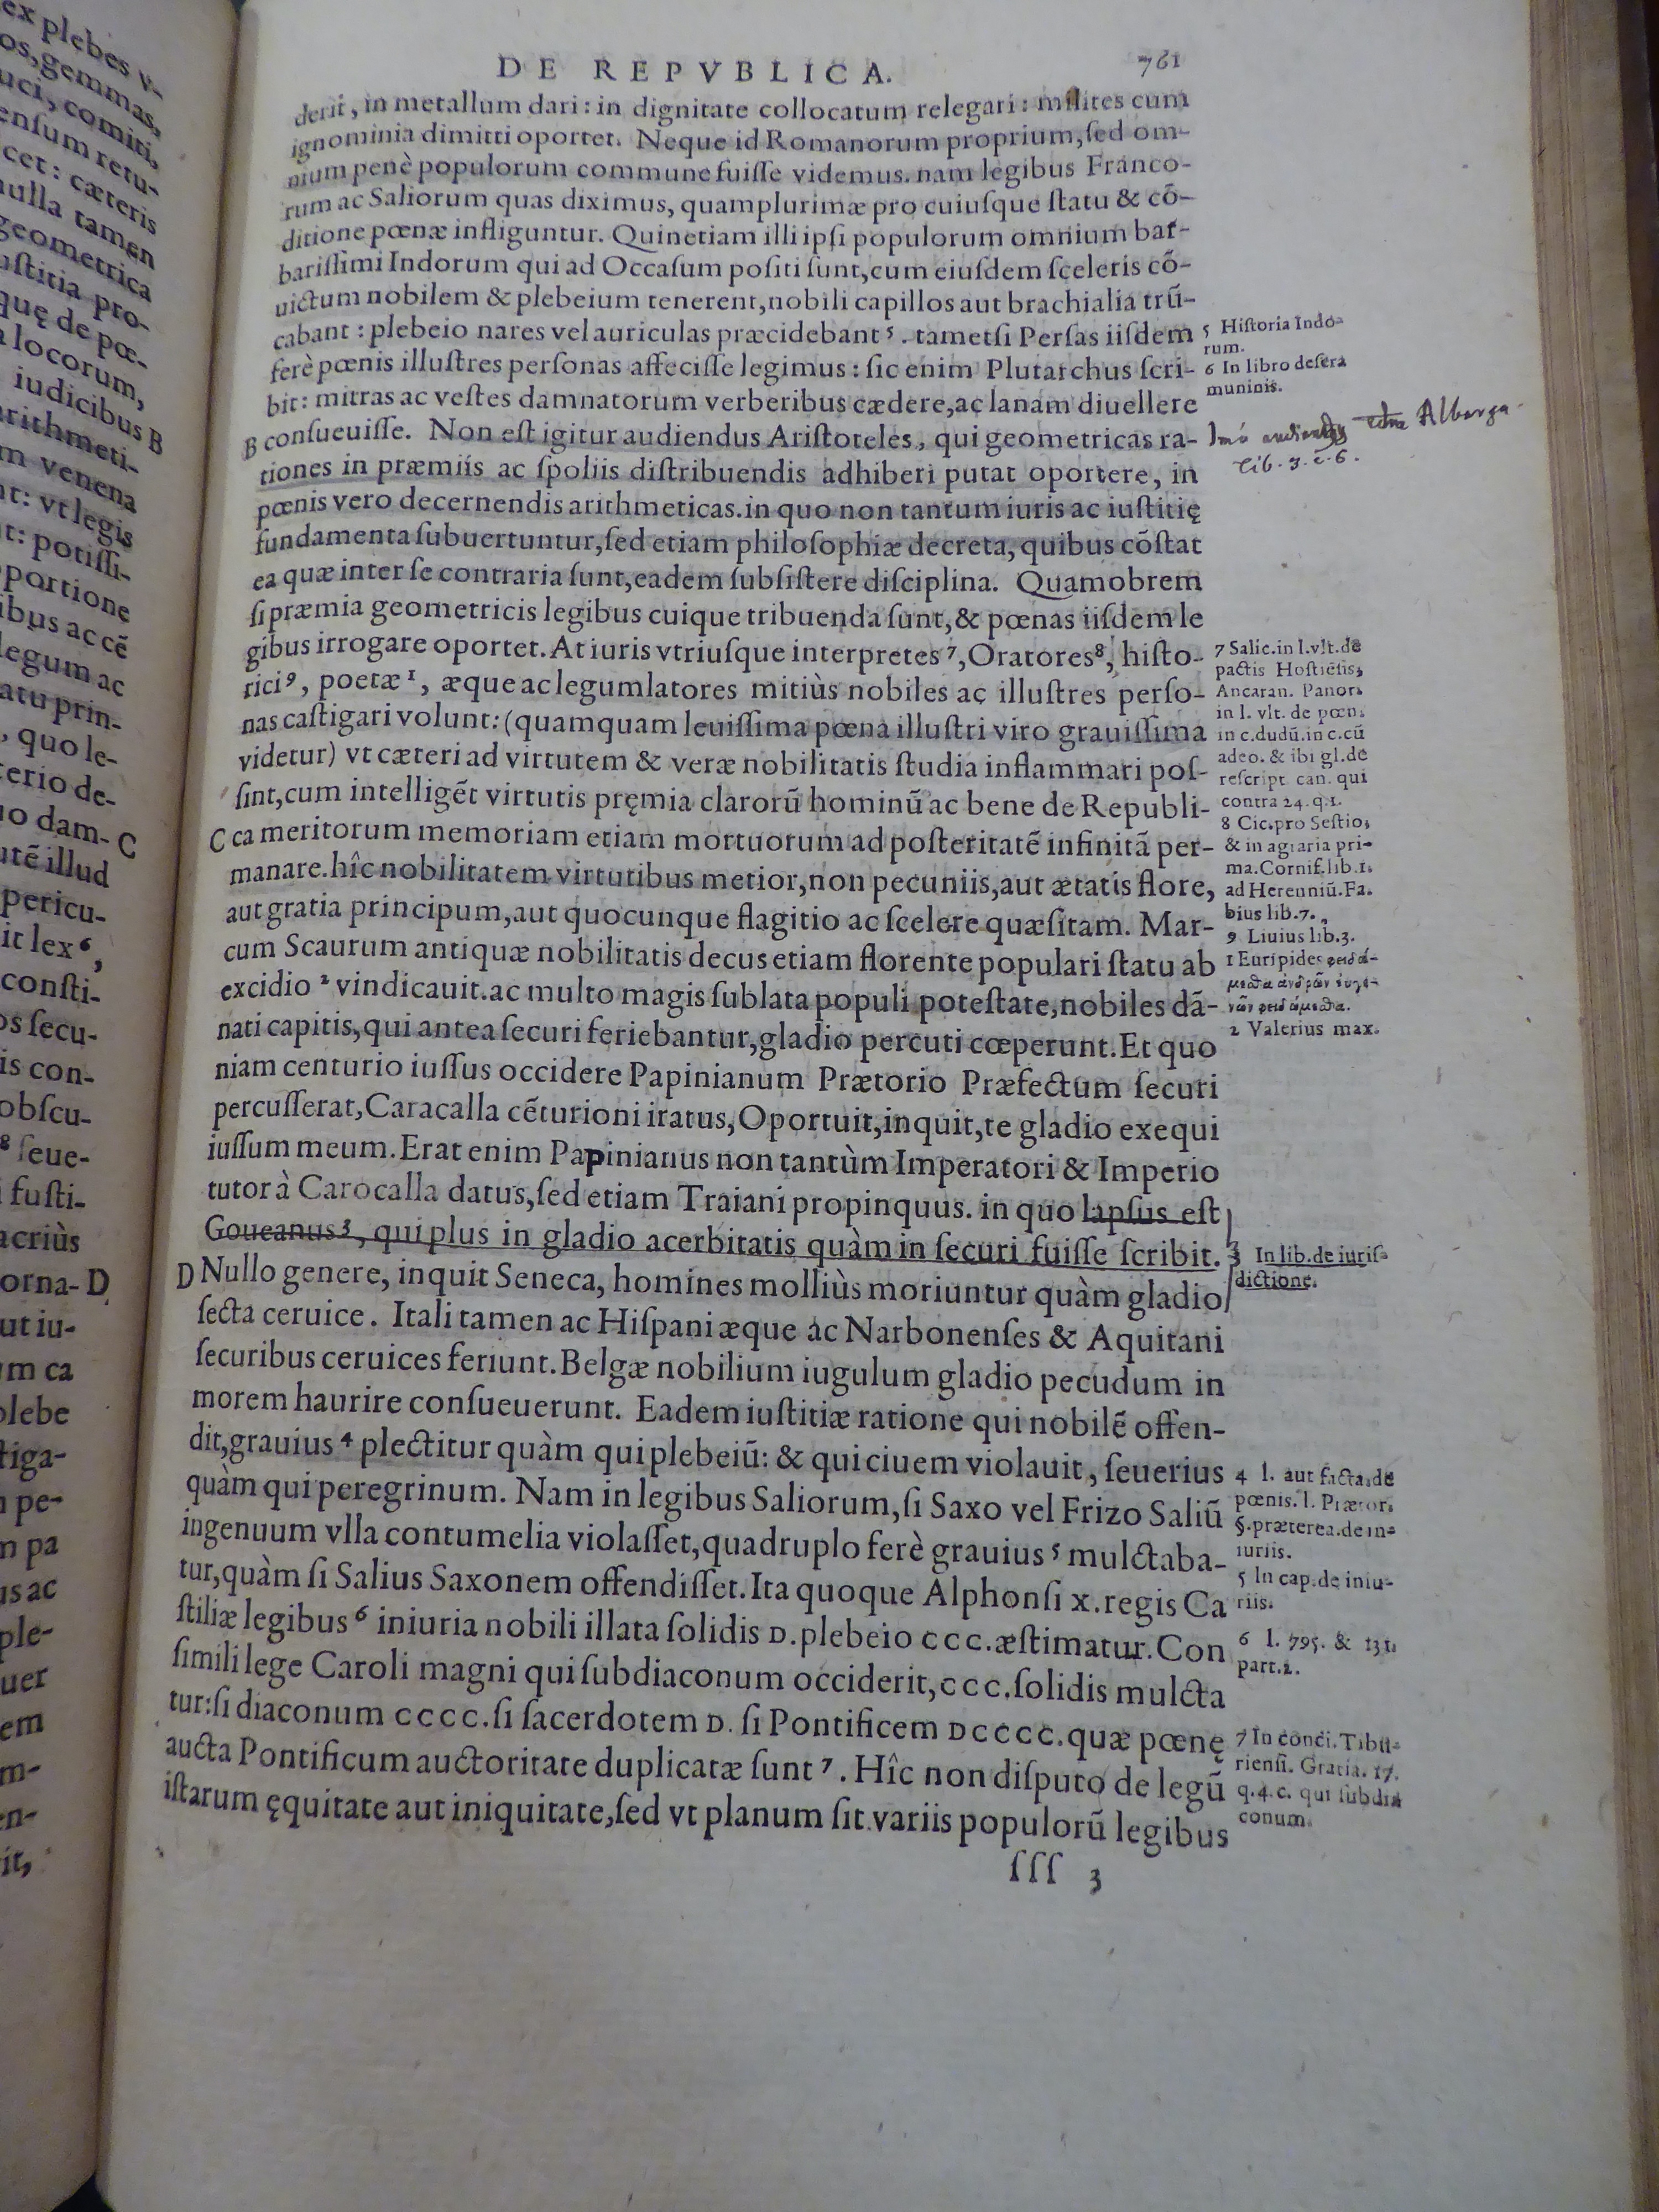 DE REPVBLICA. 761
derit, in metallum dari: in dignitate collocatum relegari: milites cum
ignominia dimitti oportet. Neque id Romanorum proprium, ſed om-
nium penè populorum commune fuiſſe videmus. nam legibus Franco-
rum ac Saliorum quas diximus, quamplurimæ pro cuiuſque ſtatu & cõ-
ditione pœnæ infliguntur. Quinetiam illi ipſi populorum omnium bar-
bariſſimi Indorum qui ad Occaſum poſiti ſunt, cum eiuſdem ſceleris cõ-
uictum nobilem & plebeium tenerent, nobili capillos aut brachialia trũ-
cabant: plebeio nares vel auriculas præcidebant 5. tametſi Perſas iiſdem
ferè pœnis illuſtres perſonas affeciſſe legimus: ſic enim Plutarchus ſcri-
bit: mitras ac veſtes damnatorum verberibus cædere, ac lanam diuellere
B conſueuiſſe. Non eſt igitur audiendus Ariſtoteles, qui geometricas ra-
tiones in præmiis ac ſpoliis diſtribuendis adhiberi putat oportere, in
pœnis vero decernendis arithmeticas. in quo non tantum iuris ac iuſtitię
fundamenta ſubuertuntur, ſed etiam philoſophiæ decreta, quibus cõſtat
ea quæ inter ſe contraria ſunt, eadem ſubſiſtere diſciplina. Quamobrem
ſi præmia geometricis legibus cuique tribuenda ſunt, & pœnas iiſdem le
gibus irrogare oportet. At iuris vtriuſque interpretes 7, Oratores 8, hiſto-
rici 9, poetæ 1, æque ac legumlatores mitiùs nobiles ac illuſtres perſo-
nas caſtigari volunt: (quamquam leuiſſima pœna illuſtri viro grauiſſima
videtur) vt cæteri ad virtutem & veræ nobilitatis ſtudia inflammari poſ-
ſint, cum intelligẽt virtutis pręmia clarorũ hominũ ac bene de Republi-
C ca meritorum memoriam etiam mortuorum ad poſteritatẽ infinitã per-
manare. hîc nobilitatem virtutibus metior, non pecuniis, aut ætatis flore,
aut gratia principum, aut quocunque flagitio ac ſcelere quæſitam. Mar-
cum Scaurum antiquæ nobilitatis decus etiam florente populari ſtatu ab
excidio 2 vindicauit. ac multo magis ſublata populi poteſtate, nobiles dã-
nati capitis, qui antea ſecuri feriebantur, gladio percuti cœperunt. Et quo
niam centurio iuſſus occidere Papinianum Prætorio Præfectum ſecuri
percuſſerat, Caracalla cẽturioni iratus, Oportuit, inquit, te gladio exequi
iuſſum meum. Erat enim Papinianus non tantùm Imperatori & Imperio
tutor à Carocalla datus, ſed etiam Traiani propinquus. in quo lapſus eſt
Goueanus 3, qui plus in gladio acerbitatis quàm in ſecuri fuiſſe ſcribit.
D Nullo genere, inquit Seneca, homines molliùs moriuntur quàm gladio
ſecta ceruice. Itali tamen ac Hiſpani æque ac Narbonenſes & Aquitani
ſecuribus ceruices feriunt. Belgæ nobilium iugulum gladio pecudum in
morem haurire conſueuerunt. Eadem iuſtitiæ ratione qui nobilẽ offen-
dit, grauius 4 plectitur quàm qui plebeiũ: & qui ciuem violauit, ſeuerius
quàm qui peregrinum. Nam in legibus Saliorum, ſi Saxo vel Frizo Saliũ
ingenuum vlla contumelia violaſſet, quadruplo ferè grauius 5 mulctaba-
tur, quàm ſi Salius Saxonem offendiſſet. Ita quoque Alphonſi x. regis Ca
ſtiliæ legibus 6 iniuria nobili illata ſolidis D. plebeio CCC. æſtimatur. Con
ſimili lege Caroli magni qui ſubdiaconum occiderit, CCC. ſolidis mulcta
tur: ſi diaconum CCCC. ſi ſacerdotem D. ſi Pontificem DCCCC. quæ pœnę
aucta Pontificum auctoritate duplicatæ ſunt 7. Hîc non diſputo de legũ
iſtarum ęquitate aut iniquitate, ſed vt planum ſit variis populorũ legibus
ſſſ 3
5 Hiſtoria Indo-
rum.
6 In libro de ſera
muninis.
Imò audiendus Alberga
lib. 3. c. 6.
7 Salic. in l. vlt. de
pactis Hoſtiẽſis,
Ancaran. Panor.
in l. vlt. de pœn.
in c. dudũ. in c. cũ
adeo. & ibi gl. de
reſcript can. qui
contra 24. q. 1.
8 Cic. pro Seſtio,
& in agraria pri-
ma. Cornif. lib. 1.
ad Herenniũ. Fa.
bius lib. 7.
9 Liuius lib. 3.
1 Euripides
2 Valerius max.
3 In lib. de iuriſ-
dictione.
4 l. aut facta. de
pœnis. l. Prætor.
§. præterea. de in-
iuriis.
5 In cap. de iniu-
riis.
6 l. 795. & 131.
part. 2.
7 In conci. Tibu-
rienſi. Gratia. 17.
q. 4. c. qui ſubdia
conum.
ex plebes v-
os, gemmas,
uci, comiti,
enſum retu-
cet: cæteris
nulla tamen
geometrica
uſtitia pro-
quę de pœ-
locorum,
iudicibus B
arithmeti-
m venena
nt: vt legis
t: potiſſi-
portione
ibus ac cẽ
legum ac
atu prin-
, quo le-
terio de-
uo dam- C
utẽ illud
pericu-
it lex 6,
conſti-
os ſecu-
is con-
obſcu-
8 ſeue-
i fuſti-
acriùs
orna- D
ut iu-
m ca
plebe
tiga-
pe-
n pa
us ac
ple-
uer
em
m-
en-
it,